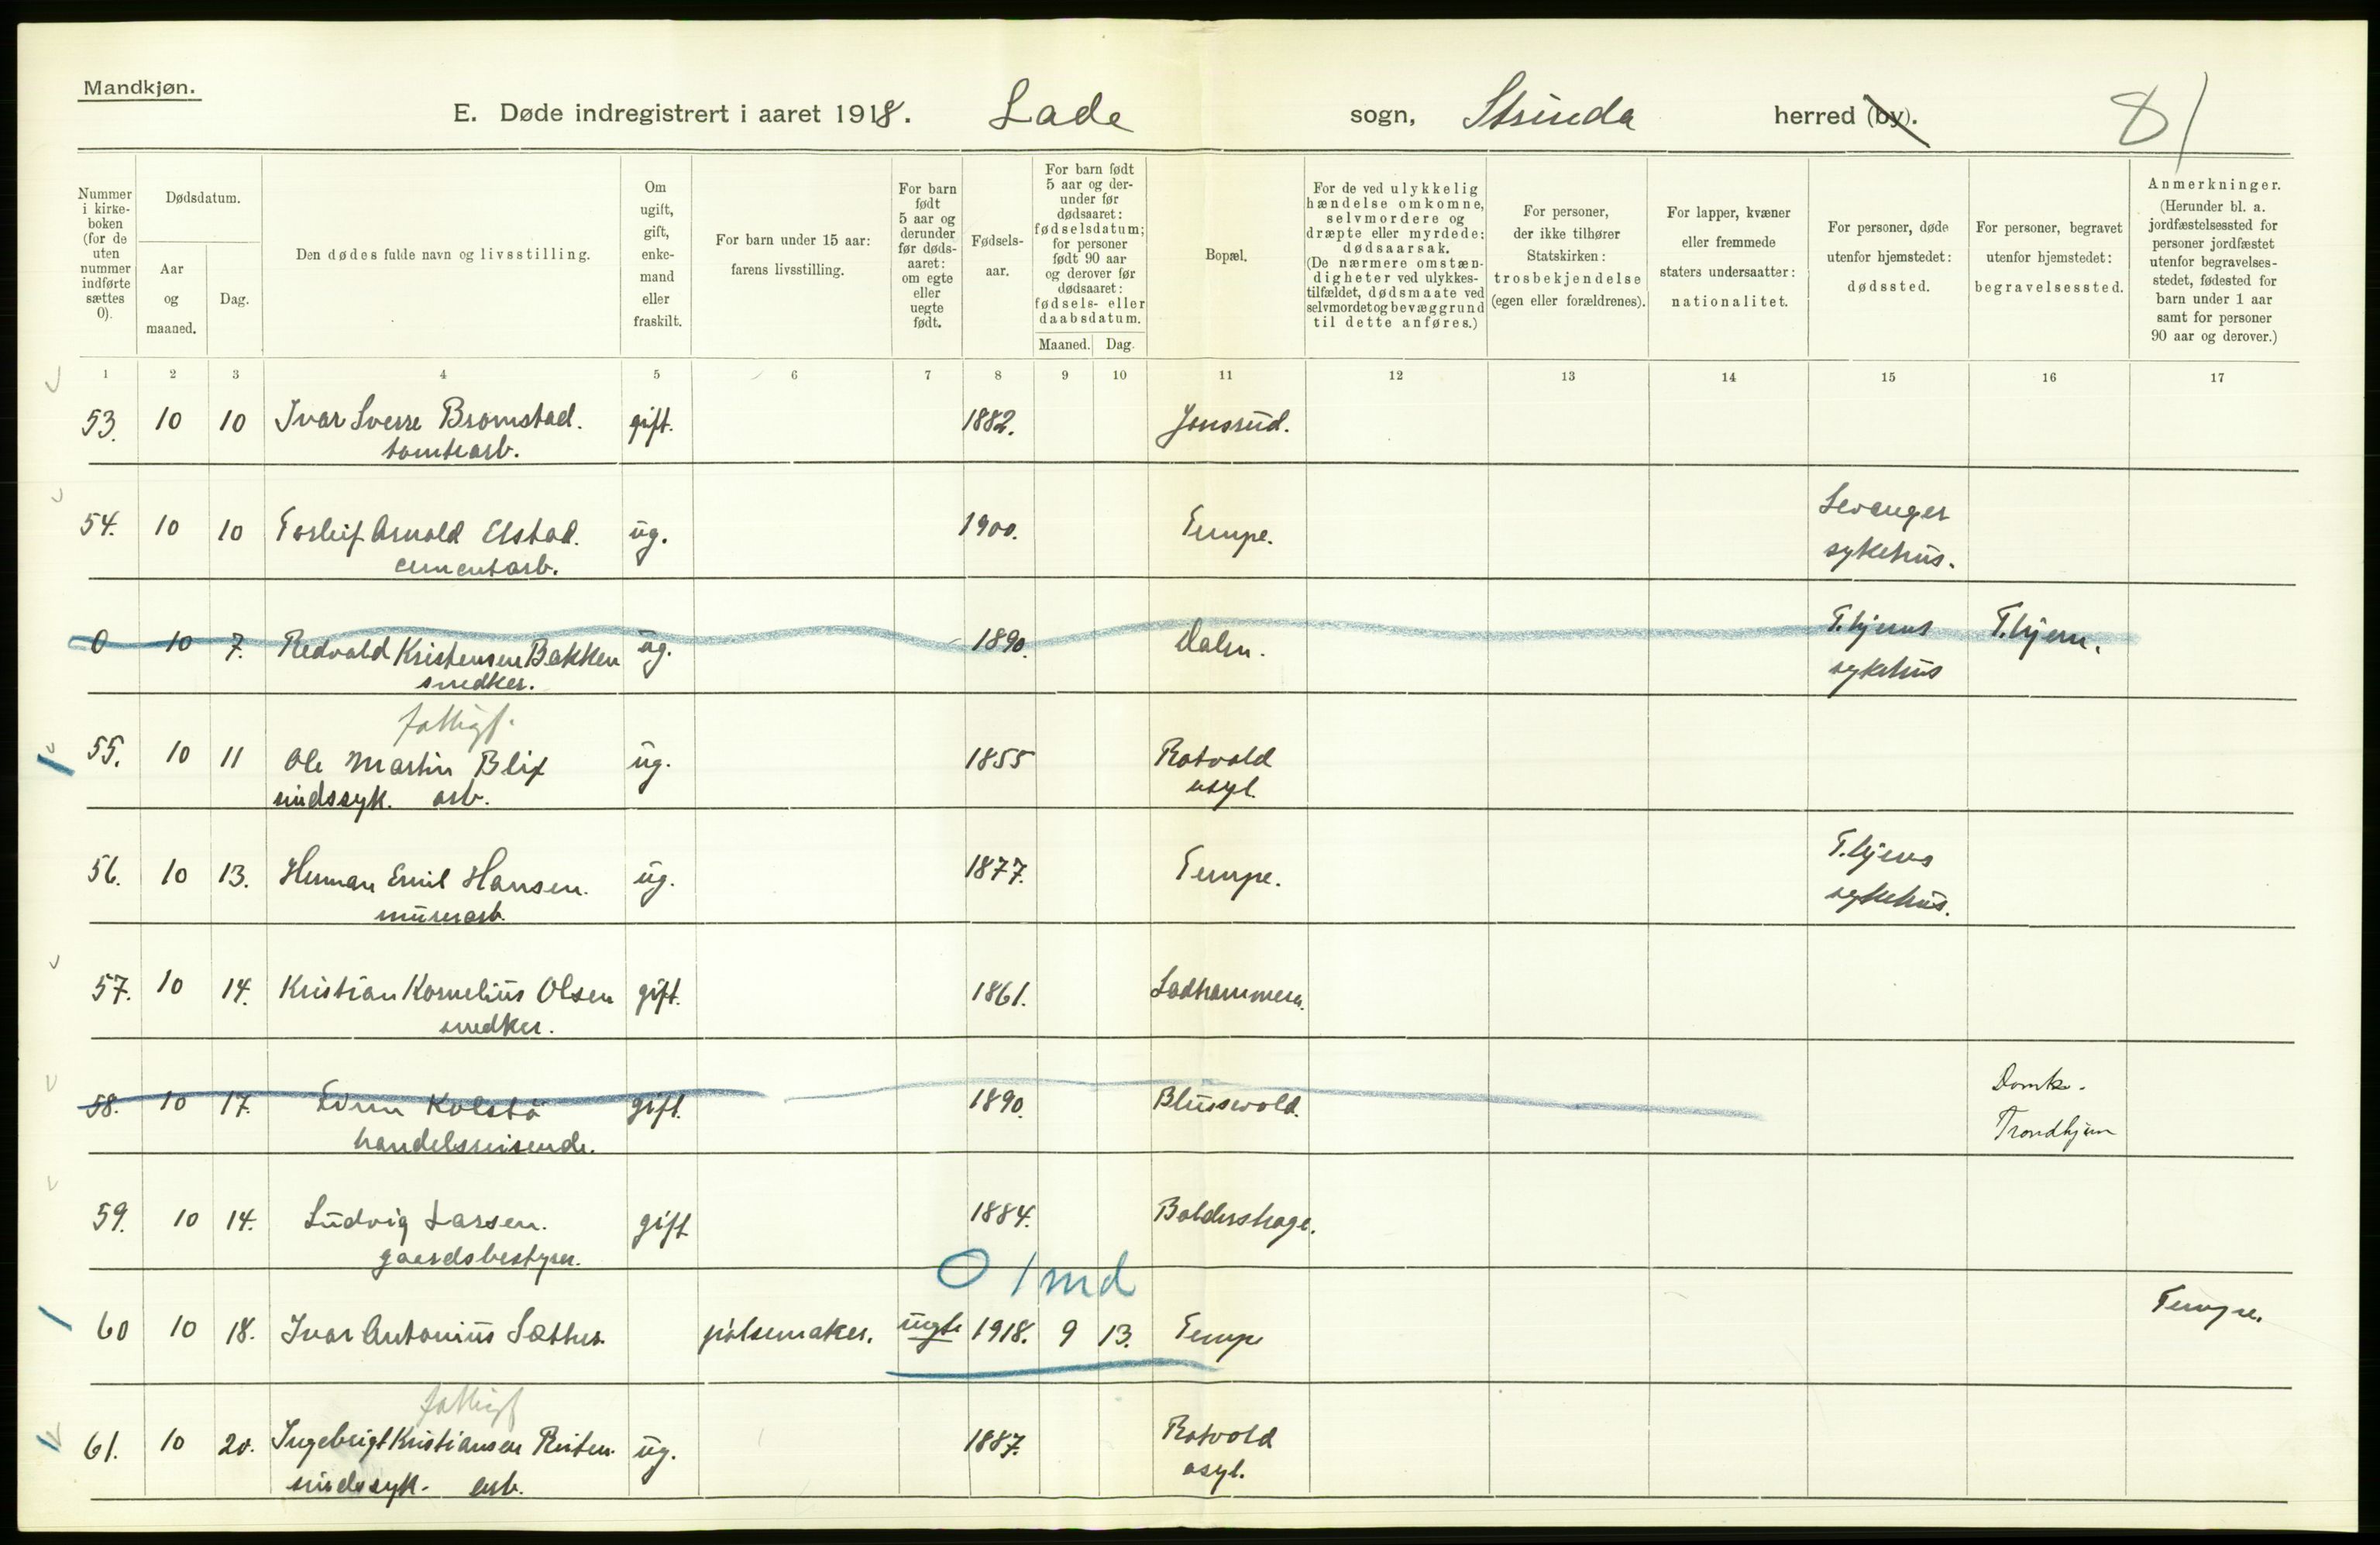 Mandkjøn.
E. Døde indregistrert i aaret 1918. Lade sogn, Strinda herred (by). 81
Nummer i kirke-boken (for de uten nummer indførte sættes 0).
Dødsdatum.
Aar og maaned.
Dag.
Den dødes fulde navn og livsstilling.
Om ugift, gift, enke-mand eller fraskilt.
For barn under 15 aar: farens livsstilling.
For barn født 5 aar og derunder før døds-aaret: om egte eller uegte født.
Fødsels-aar.
For barn født 5 aar og der-under før dødsaaret: fødselsdatum; for personer født 90 aar og derover før dødsaaret: fødsels- eller daabsdatum.
Maaned. Dag.
Bopæl.
For de ved ulykkelig hændelse omkomne, selvmordere og dræpte eller myrdede: dødsaarsak. (De nærmere omstæn-digheter ved ulykkes-tilfældet, dødsmaate ved selvmordet og bevæggrund til dette anføres.)
For personer, der ikke tilhører Statskirken: trosbekjendelse (egen eller forældrenes).
For lapper, kvæner eller fremmede staters undersaatter: nationalitet.
For personer, døde utenfor hjemstedet: dødssted.
For personer, begravet utenfor hjemstedet: begravelsessted.
Anmerkninger. (Herunder bl. a. jordfæstelsessted for personer jordfæstet utenfor begravelses-stedet, fødested for barn under 1 aar samt for personer 90 aar og derover.)
1 2 3 4 5 6 7 8 9 10 11 12 13 14 15 16 17
53. 10 10 Ivar Sverre Bromstad. gift. 1882. Jonsrud.
tomtearb.
54. 10 10 Torleif Arnold Elstad. ug. 1900. Tempe. Levanger sykehus.
cementarb.
0 10 7. Redvald Kristensen Bakken ug. 1890. Dalen. T.hjems sykehus T.hjem.
snedker.
fattigf.
55. 10 11 Ole Martin Blix ug. 1855 Rotvold asyl.
sindssyk. arb.
56. 10 13. Herman Emil Hansen. ug. 1877. Tempe. T.hjems sykehus.
murerarb.
57. 10 14. Kristian Kornelius Olsen gift. 1861. Ladhammeren.
snedker.
58. 10 17. Kolstø gift. 1890. Blussvold. Domk. Trondhjem
handelsreisende.
59. 10 14. Ludvig Larsen. gift 1884. Baldershage.
gaardsbestyrer.
0 1 md
60 10 18. Ivar Antonius Sæther. pølsemaker. uegte 1918. 9 13. Tempe Tempe.
fattigf
61. 10 20. Ingebrigt Kristiansen Reiten. ug. 1887. Rotvold asyl.
sindssyk. arb.